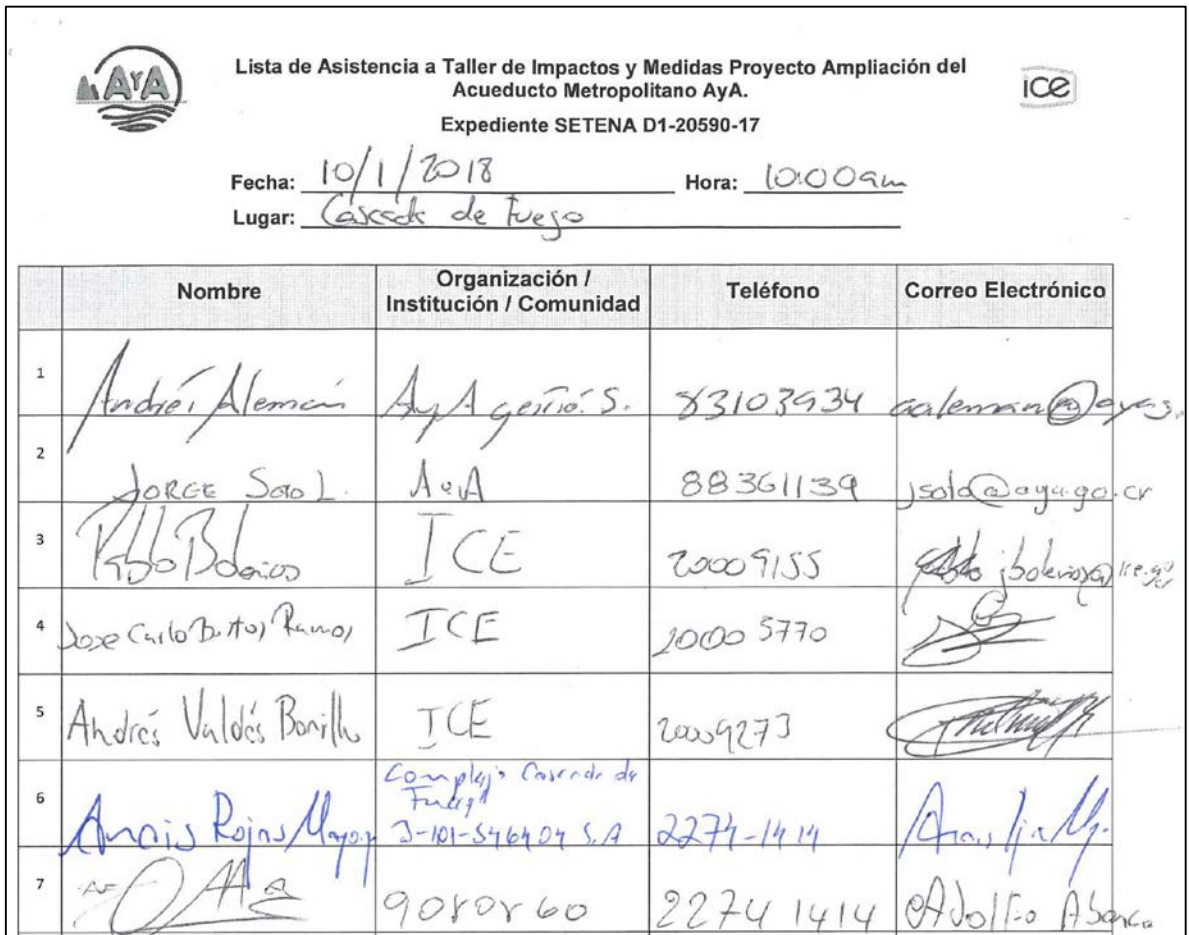 AyA
Lista de Asistencia a Taller de Impactos y Medidas Proyecto Ampliación del
Acueducto Metropolitano AyA.
ice
Expediente SETENA D1-20590-17
Fecha: 10/1/2018 Hora: 10:00am
Lugar: Cascada de Fuego
Nombre Organización / Institución / Comunidad Teléfono Correo Electrónico
1 Andrés Alemán AyA S. 83103934
2 JORGE Soto L. AyA 88361139 jsoto@aya.go.cr
3 Pablo Bolaños ICE 20009155
4 Jose Carlo Bustos Ramos ICE 20005770
5 Andrés Valdés Bonilla ICE 20009273
6 Anais Rojas Complejo Cascada de
Fuego
3-101-546404 S.A 2274-1414
7 90808 60 2274 1414 Adolfo Abarca